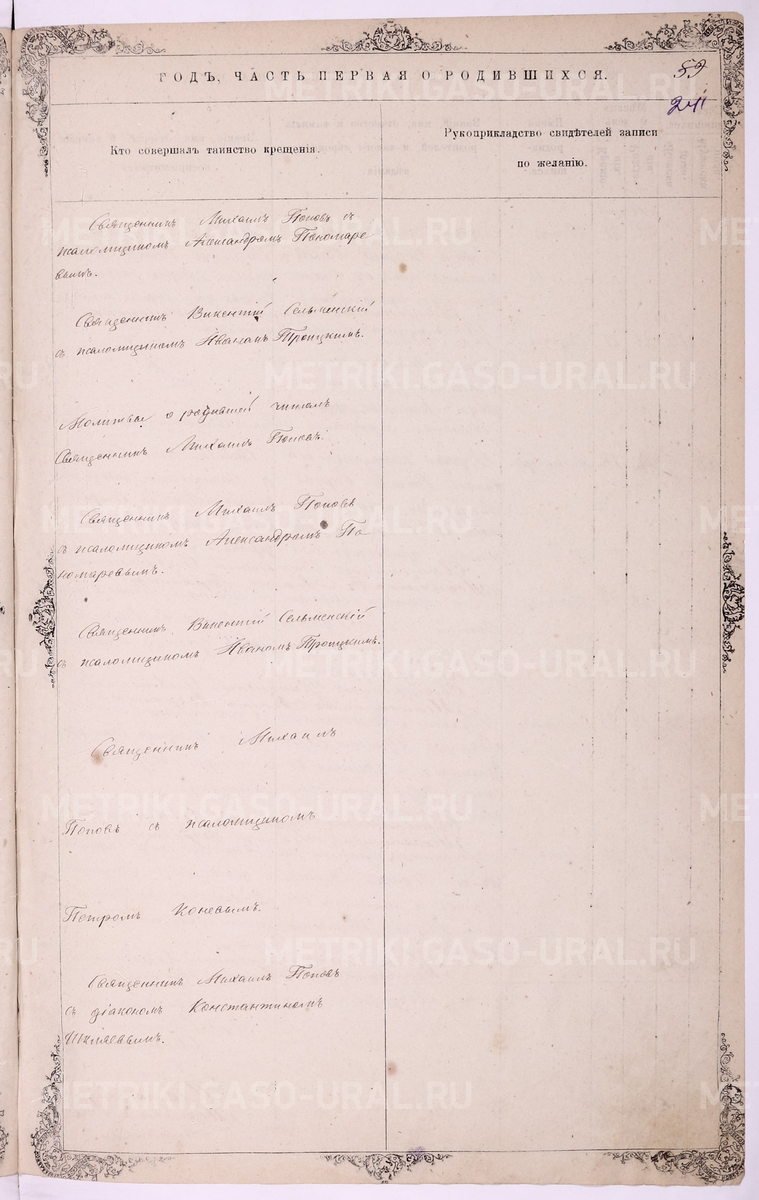 ГОДЪ, ЧАСТЬ ПЕРВАЯ О РОДИВШИХСЯ.
241
Кто совершалъ таинство крещенія.
Рукоприкладство свидѣтелей записи
по желанію.
Священникъ Михаилъ Поповъ съ
псаломщикомъ Александромъ Пономаре
вымъ.
Священникъ Викентій Сельменскій
съ псаломщикомъ Иваномъ Троицкимъ.
Молитвы о родившей читалъ
Священникъ Михаилъ Поповъ.
Священникъ Михаилъ Поповъ
съ псаломщикомъ Александромъ По
номаревымъ.
Священникъ Викентій Сельменскій
съ псаломщикомъ Иваномъ Троицкимъ.
Священникъ Михаилъ
Поповъ съ псаломщикомъ
Петромъ Коневымъ.
Священникъ Михаилъ Поповъ
съ діакономъ Константиномъ
Шкляевымъ.
METRIKI.GASO-URAL.RU